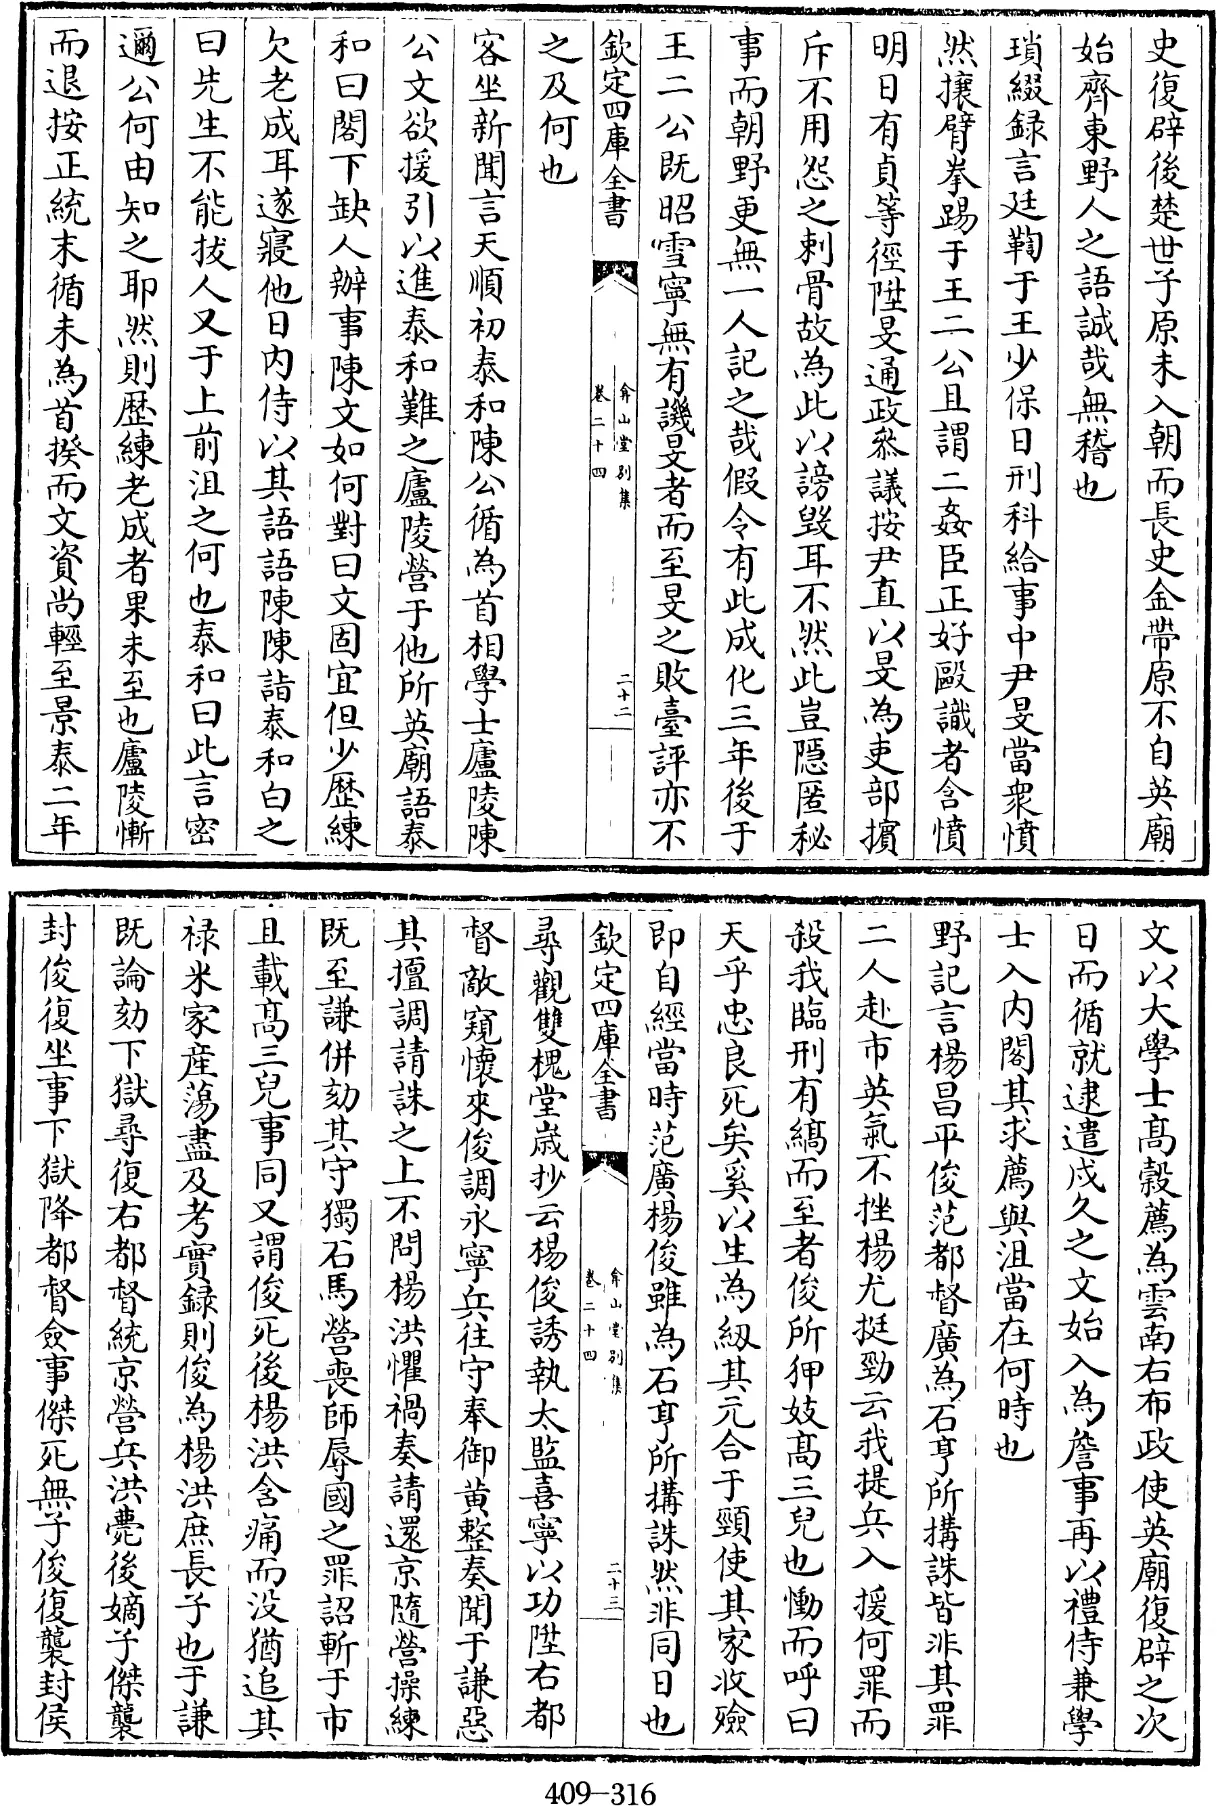 史復辟後楚世子原未入朝而長史金帶原不自英廟
始齊東野人之語誠哉無稽也
瑣綴録言廷鞫于王少保日刑科給事中尹旻當衆憤
然攘臂拳踢于王二公且謂二姦臣正好毆識者含憤
明日有貞等徑陞旻通政叅議按尹直以旻為吏部擯
斥不用怨之刺骨故為此以謗毁耳不然此豈隱匿秘
事而朝野更無一人記之哉假令有此成化三年後于
王二公既昭雪寧無有譏旻者而至旻之敗臺評亦不
欽定四庫全書
弇山堂别集
卷二十四
二十二
之及何也
客坐新聞言天順初泰和陳公循為首相學士廬陵陳
公文欲援引以進泰和難之廬陵營于他所英廟語泰
和曰閣下缺人辦事陳文如何對曰文固宜但少歴練
欠老成耳遂寢他日内侍以其語語陳陳詣泰和白之
曰先生不能拔人又于上前沮之何也泰和曰此言密
邇公何由知之耶然則歴練老成者果未至也廬陵慚
而退按正統末循未為首揆而文資尚輕至景泰二年
文以大學士髙穀薦為雲南右布政使英廟復辟之次
日而循就逮遣戍久之文始入為詹事再以禮侍兼學
士入内閣其求薦與沮當在何時也
野記言楊昌平俊范都督廣為石亨所搆誅皆非其罪
二人赴市英氣不挫楊尤挺勁云我提兵入援何罪而
殺我臨刑有縞而至者俊所狎妓髙三兒也慟而呼曰
天乎忠良死矣奚以生為紉其元合于頸使其家收殮
即自經當時范廣楊俊雖為石亨所搆誅然非同日也
欽定四庫全書
弇山堂别集
卷二十四
二十三
尋觀雙槐堂歳抄云楊俊誘執太監喜寧以功陞右都
督敵窺懷來俊調永寧兵往守奉御黄整奏聞于謙惡
其擅調請誅之上不問楊洪懼禍奏請還京隨營操練
既至謙併劾其守獨石馬營喪師辱國之罪詔斬于市
且載髙三兒事同又謂俊死後楊洪含痛而没猶追其
禄米家産蕩盡及考實録則俊為楊洪庶長子也于謙
既論劾下獄尋復右都督統京營兵洪薨後嫡子傑襲
封俊復坐事下獄降都督僉事傑死無子俊復襲封侯
409—316